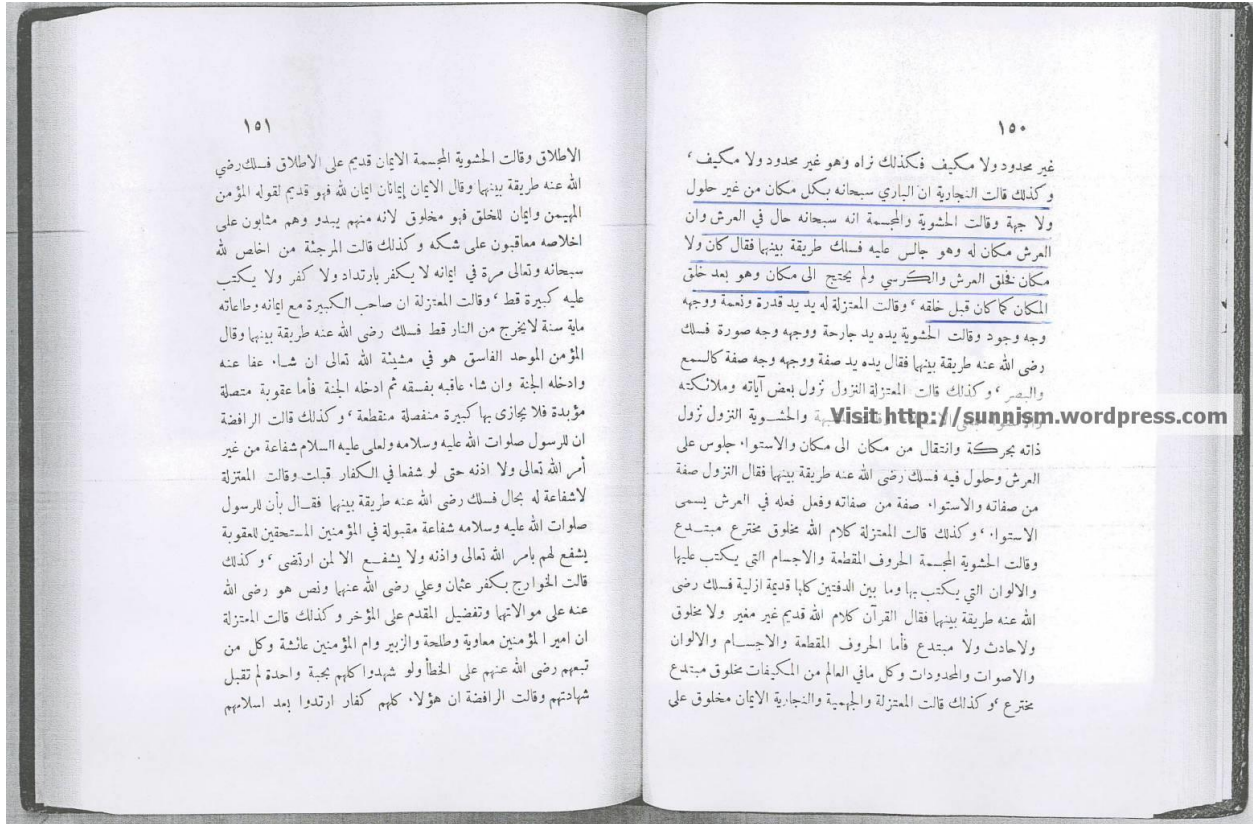 ١٥٠
غير محدود ولا مكيف فكذلك نراه وهو غير محدود ولا مكيف ،
وكذلك قالت النجارية ان الباري سبحانه بكل مكان من غير حلول
ولا جهة وقالت الحشوية والمجسمة انه سبحانه حال في العرش وان
العرش مكان له وهو جالس عليه فسلك طريقة بينها فقال كان ولا
مكان فخلق العرش والكرسي ولم يحتج الى مكان وهو بعد خلق
المكان كما كان قبل خلقه ، وقالت المعتزلة له يد يد قدرة ونعمة ووجهه
وجه وجود وقالت الحشوية يده يد جارحة ووجهه وجه صورة فسلك
رضى الله عنه طريقة بينها فقال يده يد صفة ووجهه وجه صفة كالسمع
والبصر ، وكذلك قالت المعتزلة النزول نزول بعض آياته وملائكته
والحشوية النزول نزول
Visit http://sunnism.wordpress.com
ذاته بحركة وانتقال من مكان الى مكان والاستواء جلوس على
العرش وحلول فيه فسلك رضى الله عنه طريقة بينها فقال النزول صفة
من صفاته والاستواء صفة من صفاته وفعل فعله في العرش يسمى
الاستواء ، وكذلك قالت المعتزلة كلام الله مخلوق مخترع مبتدع
وقالت الحشوية المجسمة الحروف المقطعة والاجسام التى يكتب عليها
والالوان التي يكتب بها وما بين الدفتين كلها قديمة ازلية فسلك رضى
الله عنه طريقة بينها فقال القرآن كلام الله قديم غير مغير ولا مخلوق
ولاحادث ولا مبتدع فأما الحروف المقطعة والاجسام والالوان
والاصوات والمحدودات وكل مافي العالم من المكيفات مخلوق مبتدع
مخترع ، وكذلك قالت المعتزلة والجهمية والنجارية الايمان مخلوق على
١٥١
الاطلاق وقالت الحشوية المجسمة الايمان قديم على الاطلاق فسلك رضي
الله عنه طريقة بينها وقال الايمان إيمانان ايمان لله فهو قديم لقوله المؤمن
المهيمن وايمان للخلق فهو مخلوق لانه منهم يبدو وهم مثابون على
اخلاصه معاقبون على شكه وكذلك قالت المرجئة من اخلص لله
سبحانه وتعالى مرة في ايمانه لا يكفر بارتداد ولا كفر ولا يكتب
عليه كبيرة قط ، وقالت المعتزلة ان صاحب الكبيرة مع ايمانه وطاعاته
ماية سنة لايخرج من النار قط فسلك رضى الله عنه طريقة بينها وقال
المؤمن الموحد الفاسق هو في مشيئة الله تعالى ان شاء عفا عنه
وادخله الجنة وان شاء عاقبه بفسقه ثم ادخله الجنة فأما عقوبة متصلة
مؤبدة فلا يجازى بها كبيرة منفصلة منقطعة ، وكذلك قالت الرافضة
ان للرسول صلوات الله عليه وسلامه ولعلي عليه السلام شفاعة من غير
أمر الله تعالى ولا اذنه حتى لو شفعا في الكفار قبلت وقالت المعتزلة
لاشفاعة له بحال فسلك رضى الله عنه طريقة بينها فقال بأن للرسول
صلوات الله عليه وسلامه شفاعة مقبولة في المؤمنين المستحقين للعقوبة
يشفع لهم بامر الله تعالى واذنه ولا يشفع الا لمن ارتضى ، وكذلك
قالت الخوارج بكفر عثمان وعلي رضى الله عنهما ونص هو رضى الله
عنه على موالاتها وتفضيل المقدم على المؤخر وكذلك قالت المعتزلة
ان امير المؤمنين معاوية وطلحة والزبير وام المؤمنين عائشة وكل من
تبعهم رضى الله عنهم على الخطأ ولو شهدوا كلهم بحبة واحدة لم تقبل
شهادتهم وقالت الرافضة ان هؤلاء كلهم كفار ارتدوا بعد اسلامهم